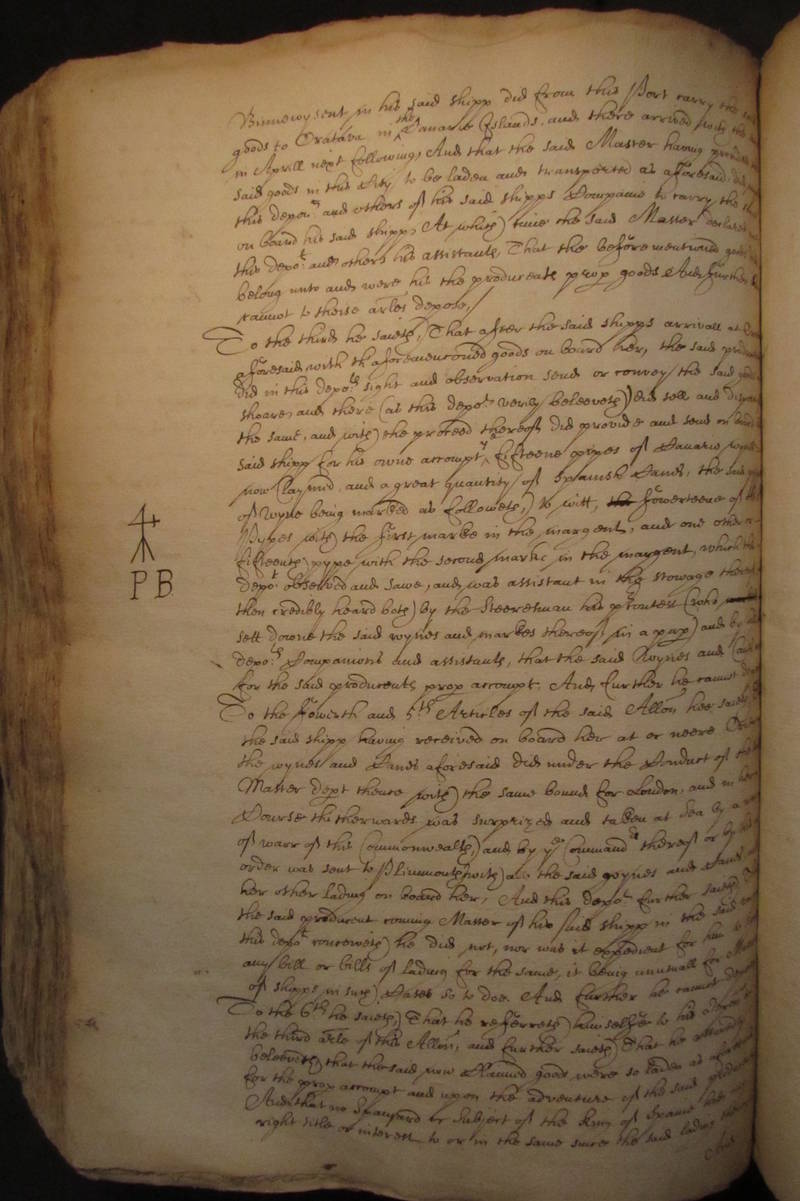 Binnewysent in his said shipp did from this Port carry the said
goods to Oratava in the Canarie Eslands, and there arrived with the
in Aprill next following, And that the said Master having
said goods in this City to be laden and transported as aforesaid, did
this depont and others of his said shipps Companie to carry the
on board his said shipp, At which time the said Master declared
this depot and others his assistants, That the beforementioned goods did
belong unto and were his the producents propr goods And further he
cannot to theise arles depose./
To the third he saieth, That after the said shipps arrivall at
aforesaid with th aforemencioned goods on board her, the said producent
did in this depots sight and observation send or convey the said goods
shoare, and there (as this depot verily beleeveth) did sell and dispose
the same, and with the proceed thereof did provide and send on board
said shipp for his owne accompt fifteene pypes of Canarie wynes
now claymed, and a great quantity of Spanish Cand, the said
of wyne being marked as followeth, to witt, fowerteene of the
Pypes with the first marke in the margent, and one other or
fifteenth pype with the second marke in the margent, which this
4
P B
depot observed and sawe, and was assistant in the stowage thereof
then credibly heard both by the Steeresman his precontest (who
sett downe the said wynes and markes thereof in a
depots Companions and assistants, that the said Wynes and Cand
for the said producents propr accompt. And further he cannot depose
To the fowerth and 5th Articles of the said Allon hee saieth
the said shipp having received on board her at or neere
the wynes and Cands aforesaid did under the Conduct of the
Master dept thence with the same bound for London, and in her
Course thitherwards was surprized and taken at Sea by a
of warr of this Commonwealth, and by ye Commandr thereof or by his
order was sent to Plimmouth with all the said wynes and Cand and
her other lading on board her, And this depot further saieth
the said producent coming Master of his said shipp in the said
this depot conceiveth he did not, nor was it expedient for him to
any bill or bills of lading for the same, it being unusuall for Masters
of shipps in such Cases so to doe. And further he cannot depose
To the 6th he saieth, That he referreth himselfe to his
the third arle of this Allon, and further saieth, That he
beleeveth that the said now Claimed goods were so laden as aforesaid
for the propr accompt and upon the adventure of the said producent
And that no Spanyard or Subject of the King of Spaine
right title or interest to or in the same since the said lading thereof
And